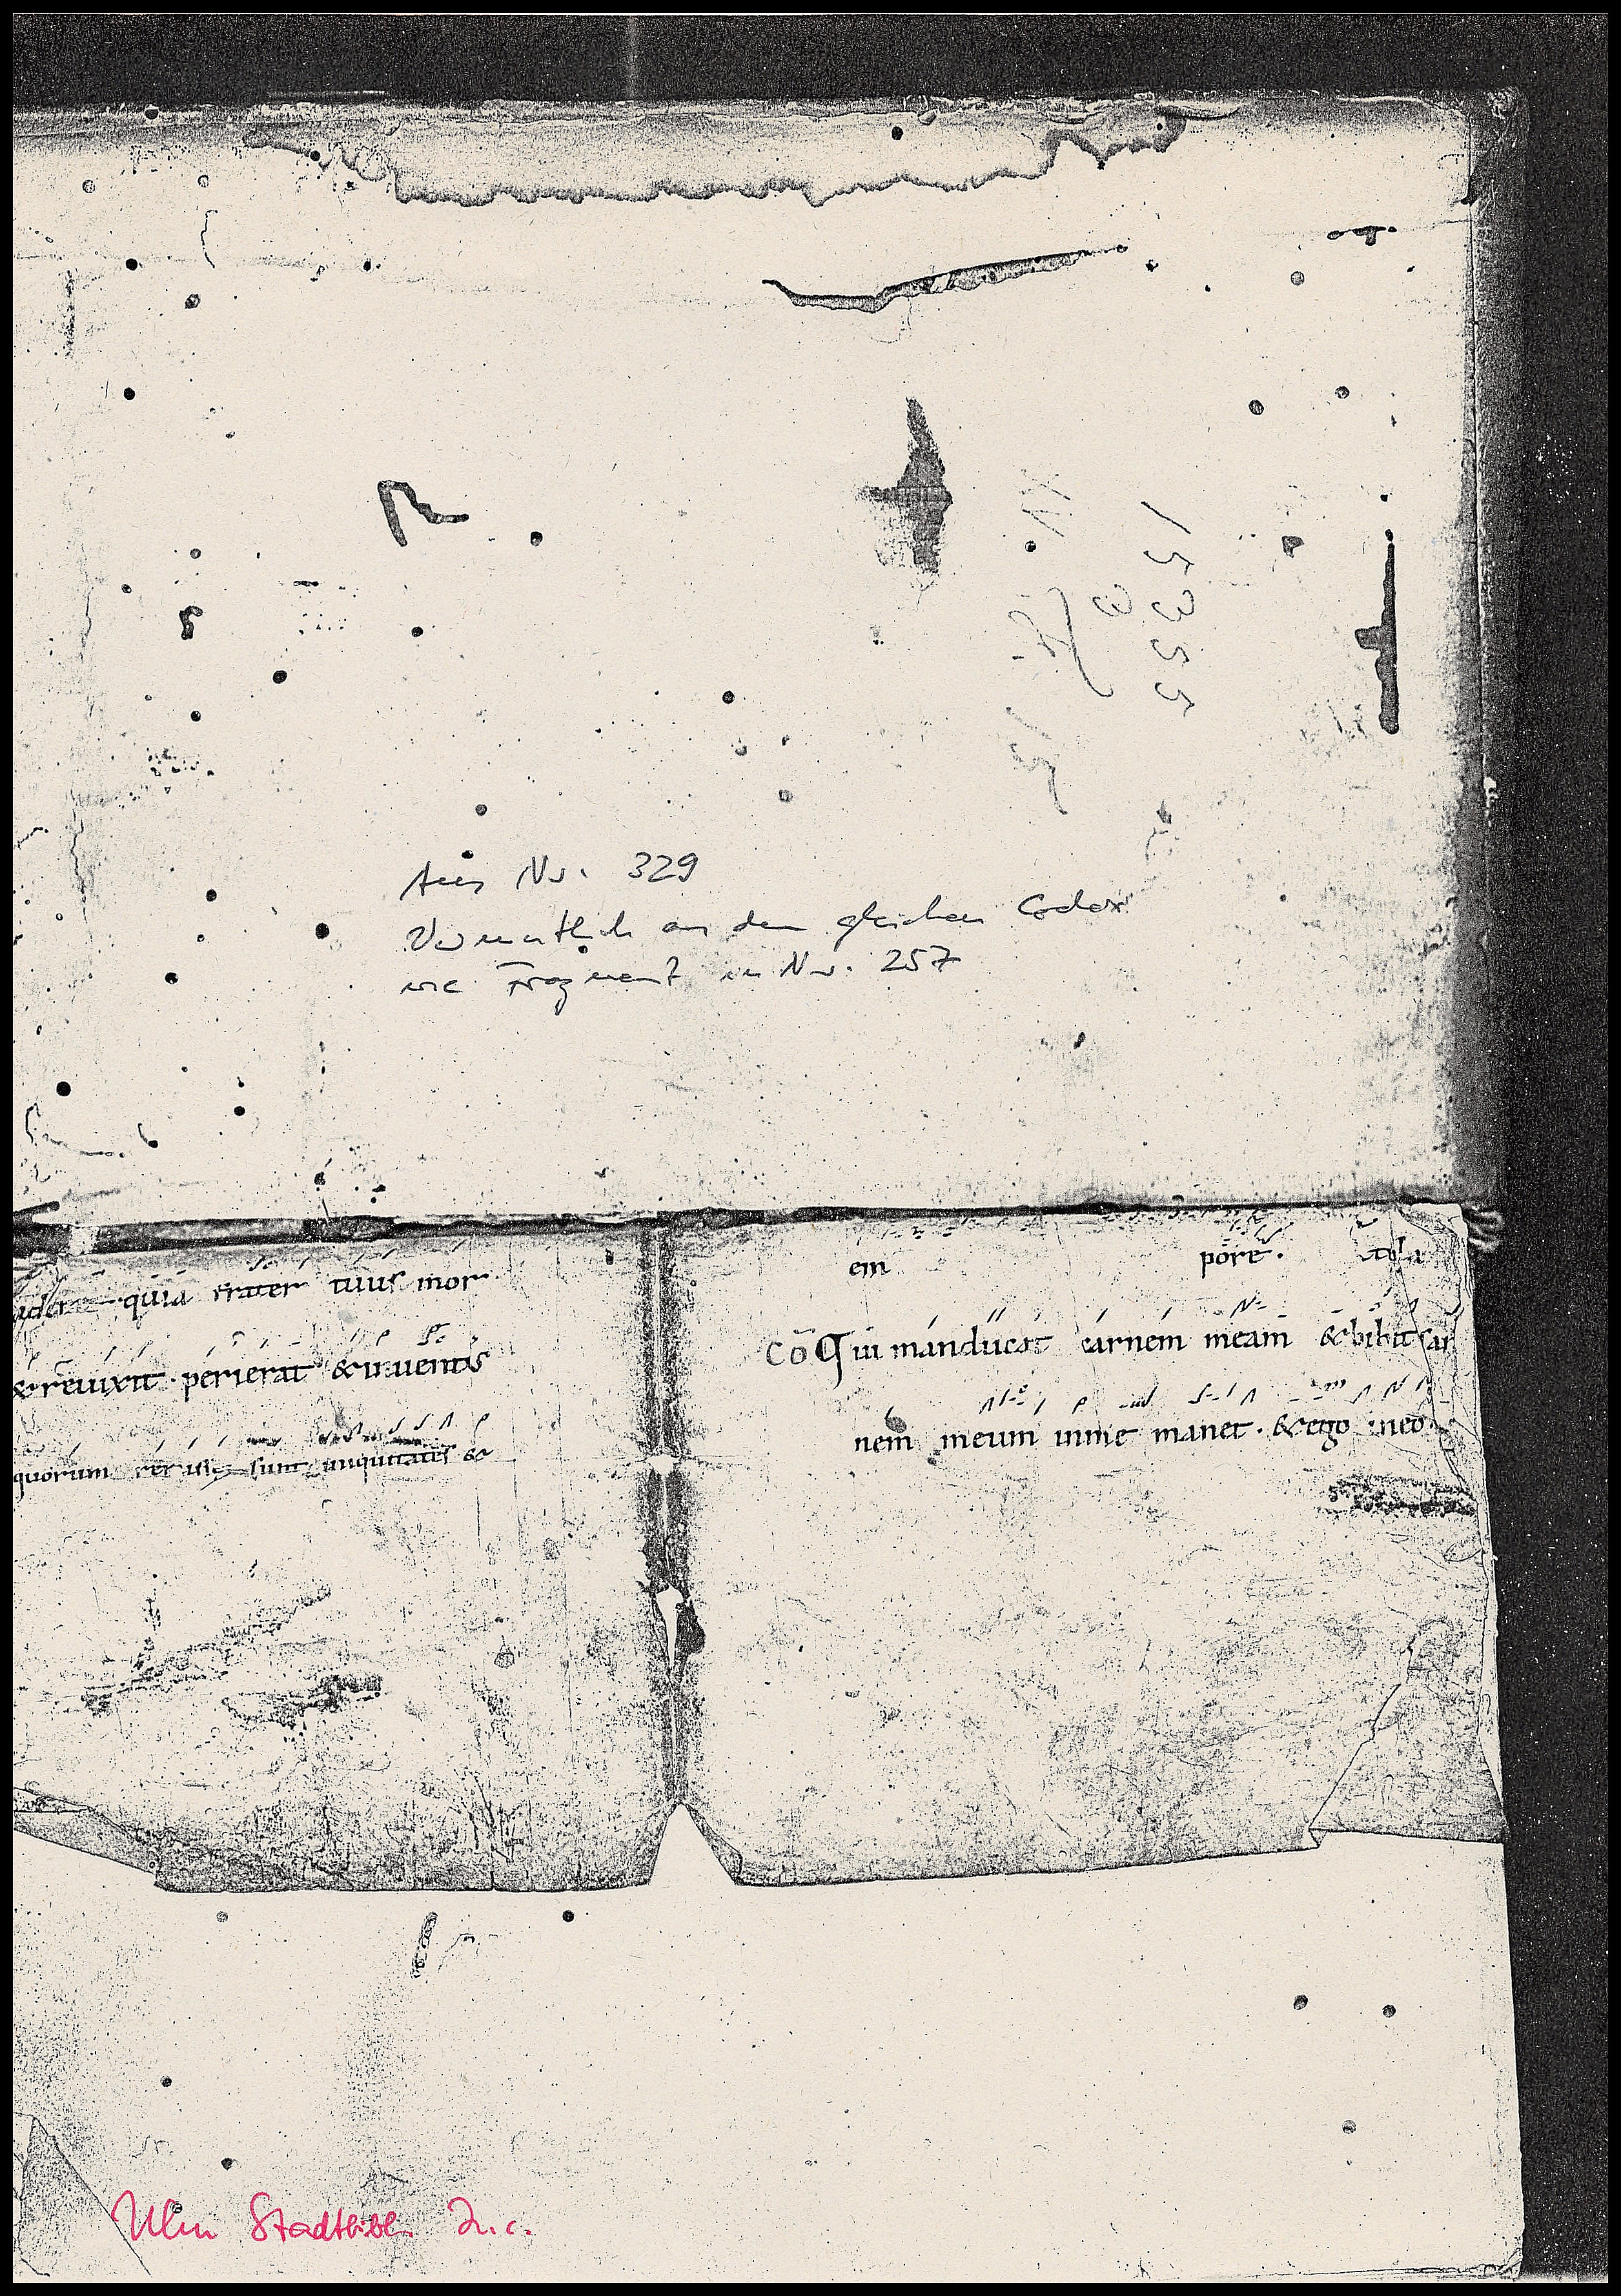 15355
3
Aus Nr. 329
Vermutlich aus dem gleichen Codex
wie Fragment in Nr. 257
quia frater tuus mor
& reuixit · perierat & inuentus
quorum sunt iniquitates &
em pore.
CŌ Qui manducat carnem meam & bibit san
nem meum in me manet · & ego in eo
Ulm Stadtbibl. Inc.